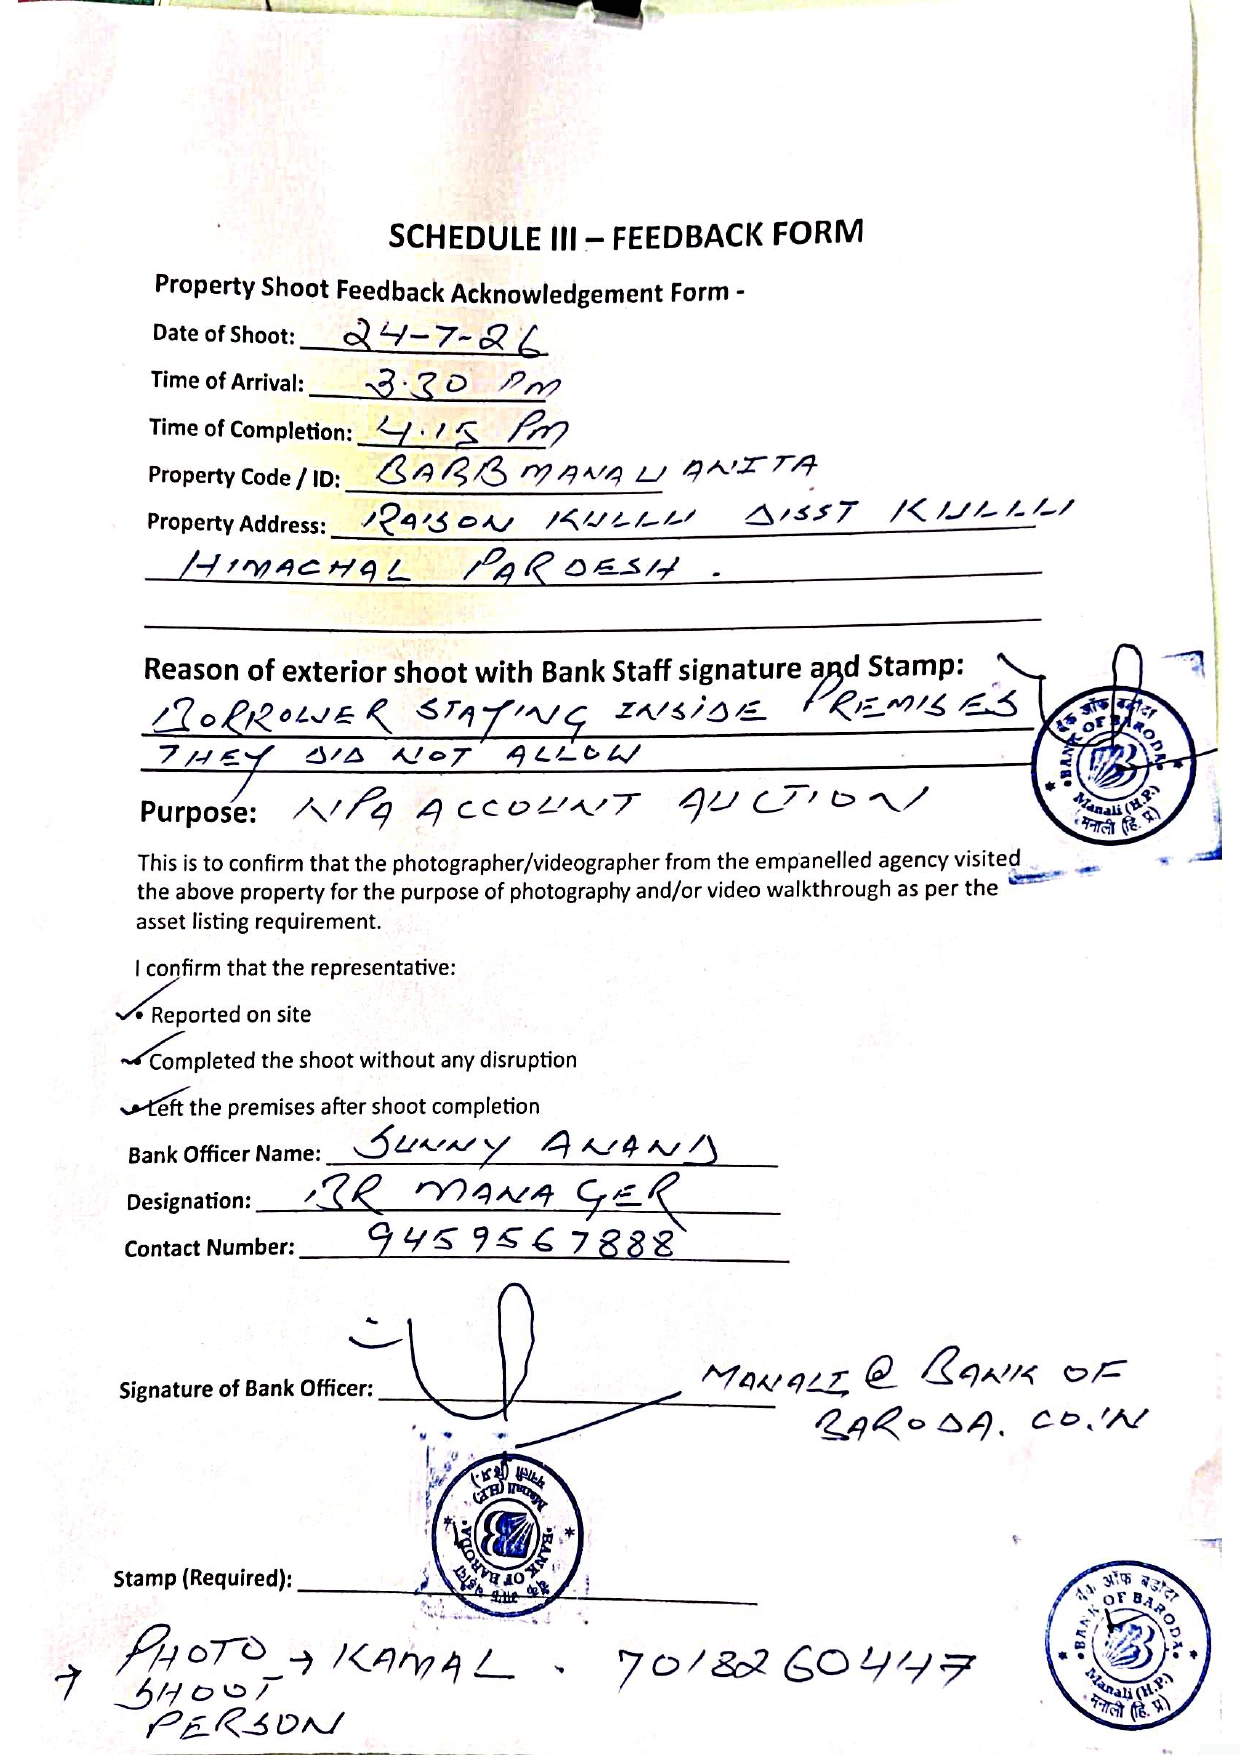 SCHEDULE III – FEEDBACK FORM
Property Shoot Feedback Acknowledgement Form -
Date of Shoot: 24-7-26
Time of Arrival: 3.30 PM
Time of Completion: 4.15 PM
Property Code / ID: BARBMANALI ANITA
Property Address: RAISON KULLU DISST KULLU
HIMACHAL PARDESH .
Reason of exterior shoot with Bank Staff signature and Stamp:
BORROWER STAYING INSIDE PREMISES
THEY DID NOT ALLOW
बैंक ऑफ बड़ौदा
BANK OF BARODA
Manali (H.P.)
मनाली (हि. प्र.)
Purpose: NPA ACCOUNT AUCTION
This is to confirm that the photographer/videographer from the empanelled agency visited
the above property for the purpose of photography and/or video walkthrough as per the
asset listing requirement.
I confirm that the representative:
• Reported on site
• Completed the shoot without any disruption
• Left the premises after shoot completion
Bank Officer Name: SUNNY ANAND
Designation: BR MANAGER
Contact Number: 9459567888
Signature of Bank Officer:
MANALI @ BANK OF
BARODA. CO.IN
बैंक ऑफ बड़ौदा
BANK OF BARODA
Manali (H.P.)
मनाली (हि. प्र.)
Stamp (Required):
बैंक ऑफ बड़ौदा
BANK OF BARODA
Manali (H.P.)
मनाली (हि. प्र.)
→ PHOTO → KAMAL . 7018260447
SHOOT
PERSON